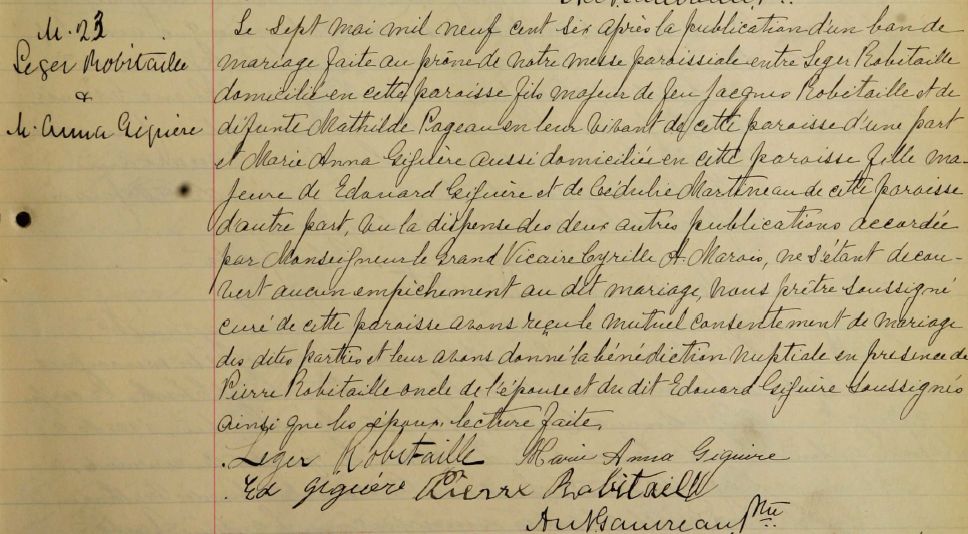 M. 23
Leger Robitaille
&
M. Anna Giguère
Le sept mai mil neuf cent six après la publication d'un ban de
mariage faite au prône de notre messe paroissiale entre Leger Robitaille
domicilié en cette paroisse fils majeur de feu Jacques Robitaille et de
défunte Mathilde Pageau en leur vivant de cette paroisse d'une part
et Marie Anna Giguère aussi domiciliée en cette paroisse fille ma-
jeure de Edouard Giguère et de Cédulie Martineau de cette paroisse
d'autre part, vu la dispense des deux autres publications accordée
par Monseigneur le Grand Vicaire Cyrille A. Marois, ne s'étant decou-
vert aucun empêchement au dit mariage, nous prêtre soussigné
curé de cette paroisse avons reçu le mutuel consentement de mariage
des dites parties et leur avons donné la bénédiction nuptiale en presence de
Pierre Robitaille oncle de l'épouse et du dit Edouard Giguère soussignés
ainsi que les époux, lecture faite.
Leger Robitaille Marie Anna Giguire
Ed Giguère Pierre Robitaille
Ptre